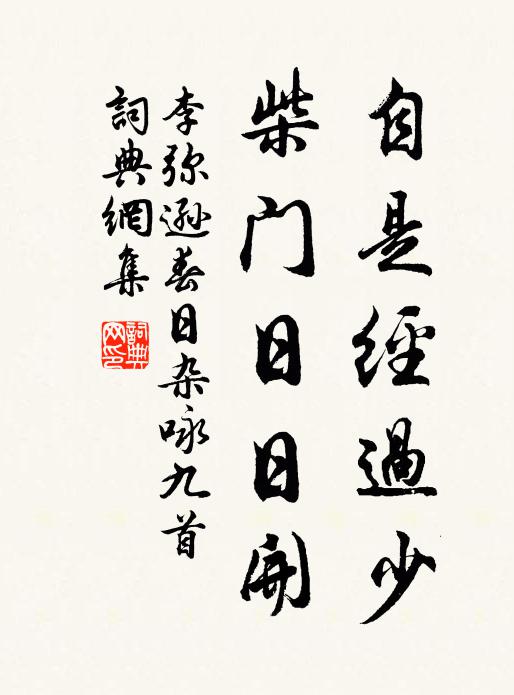 自是經過少
柴门日日開
李弥遜春日杂咏九首
詞典網集
詞典网印